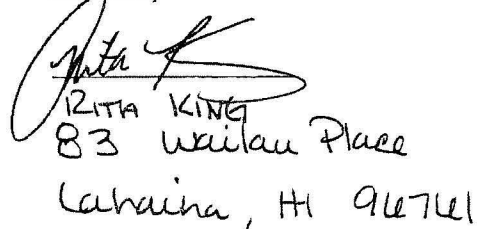 Rita K
RITA KING
83 Wailau Place
Lahaina, HI 96761